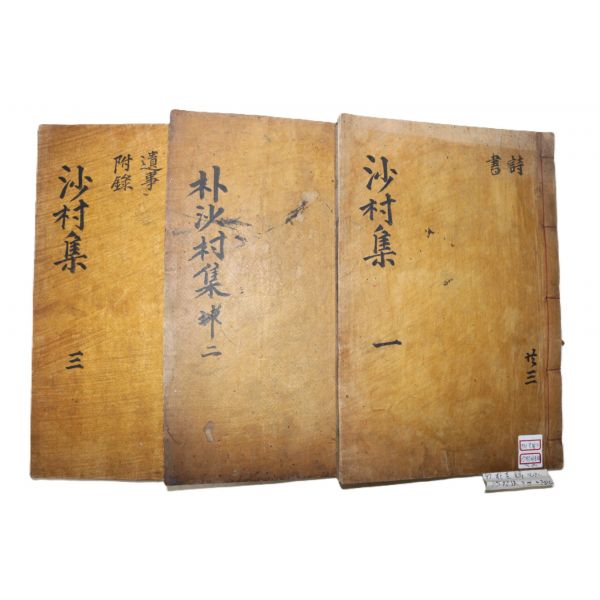 詩
書
共三
沙村集
一
朴沙村集
二
遺事
附錄
沙村集
三